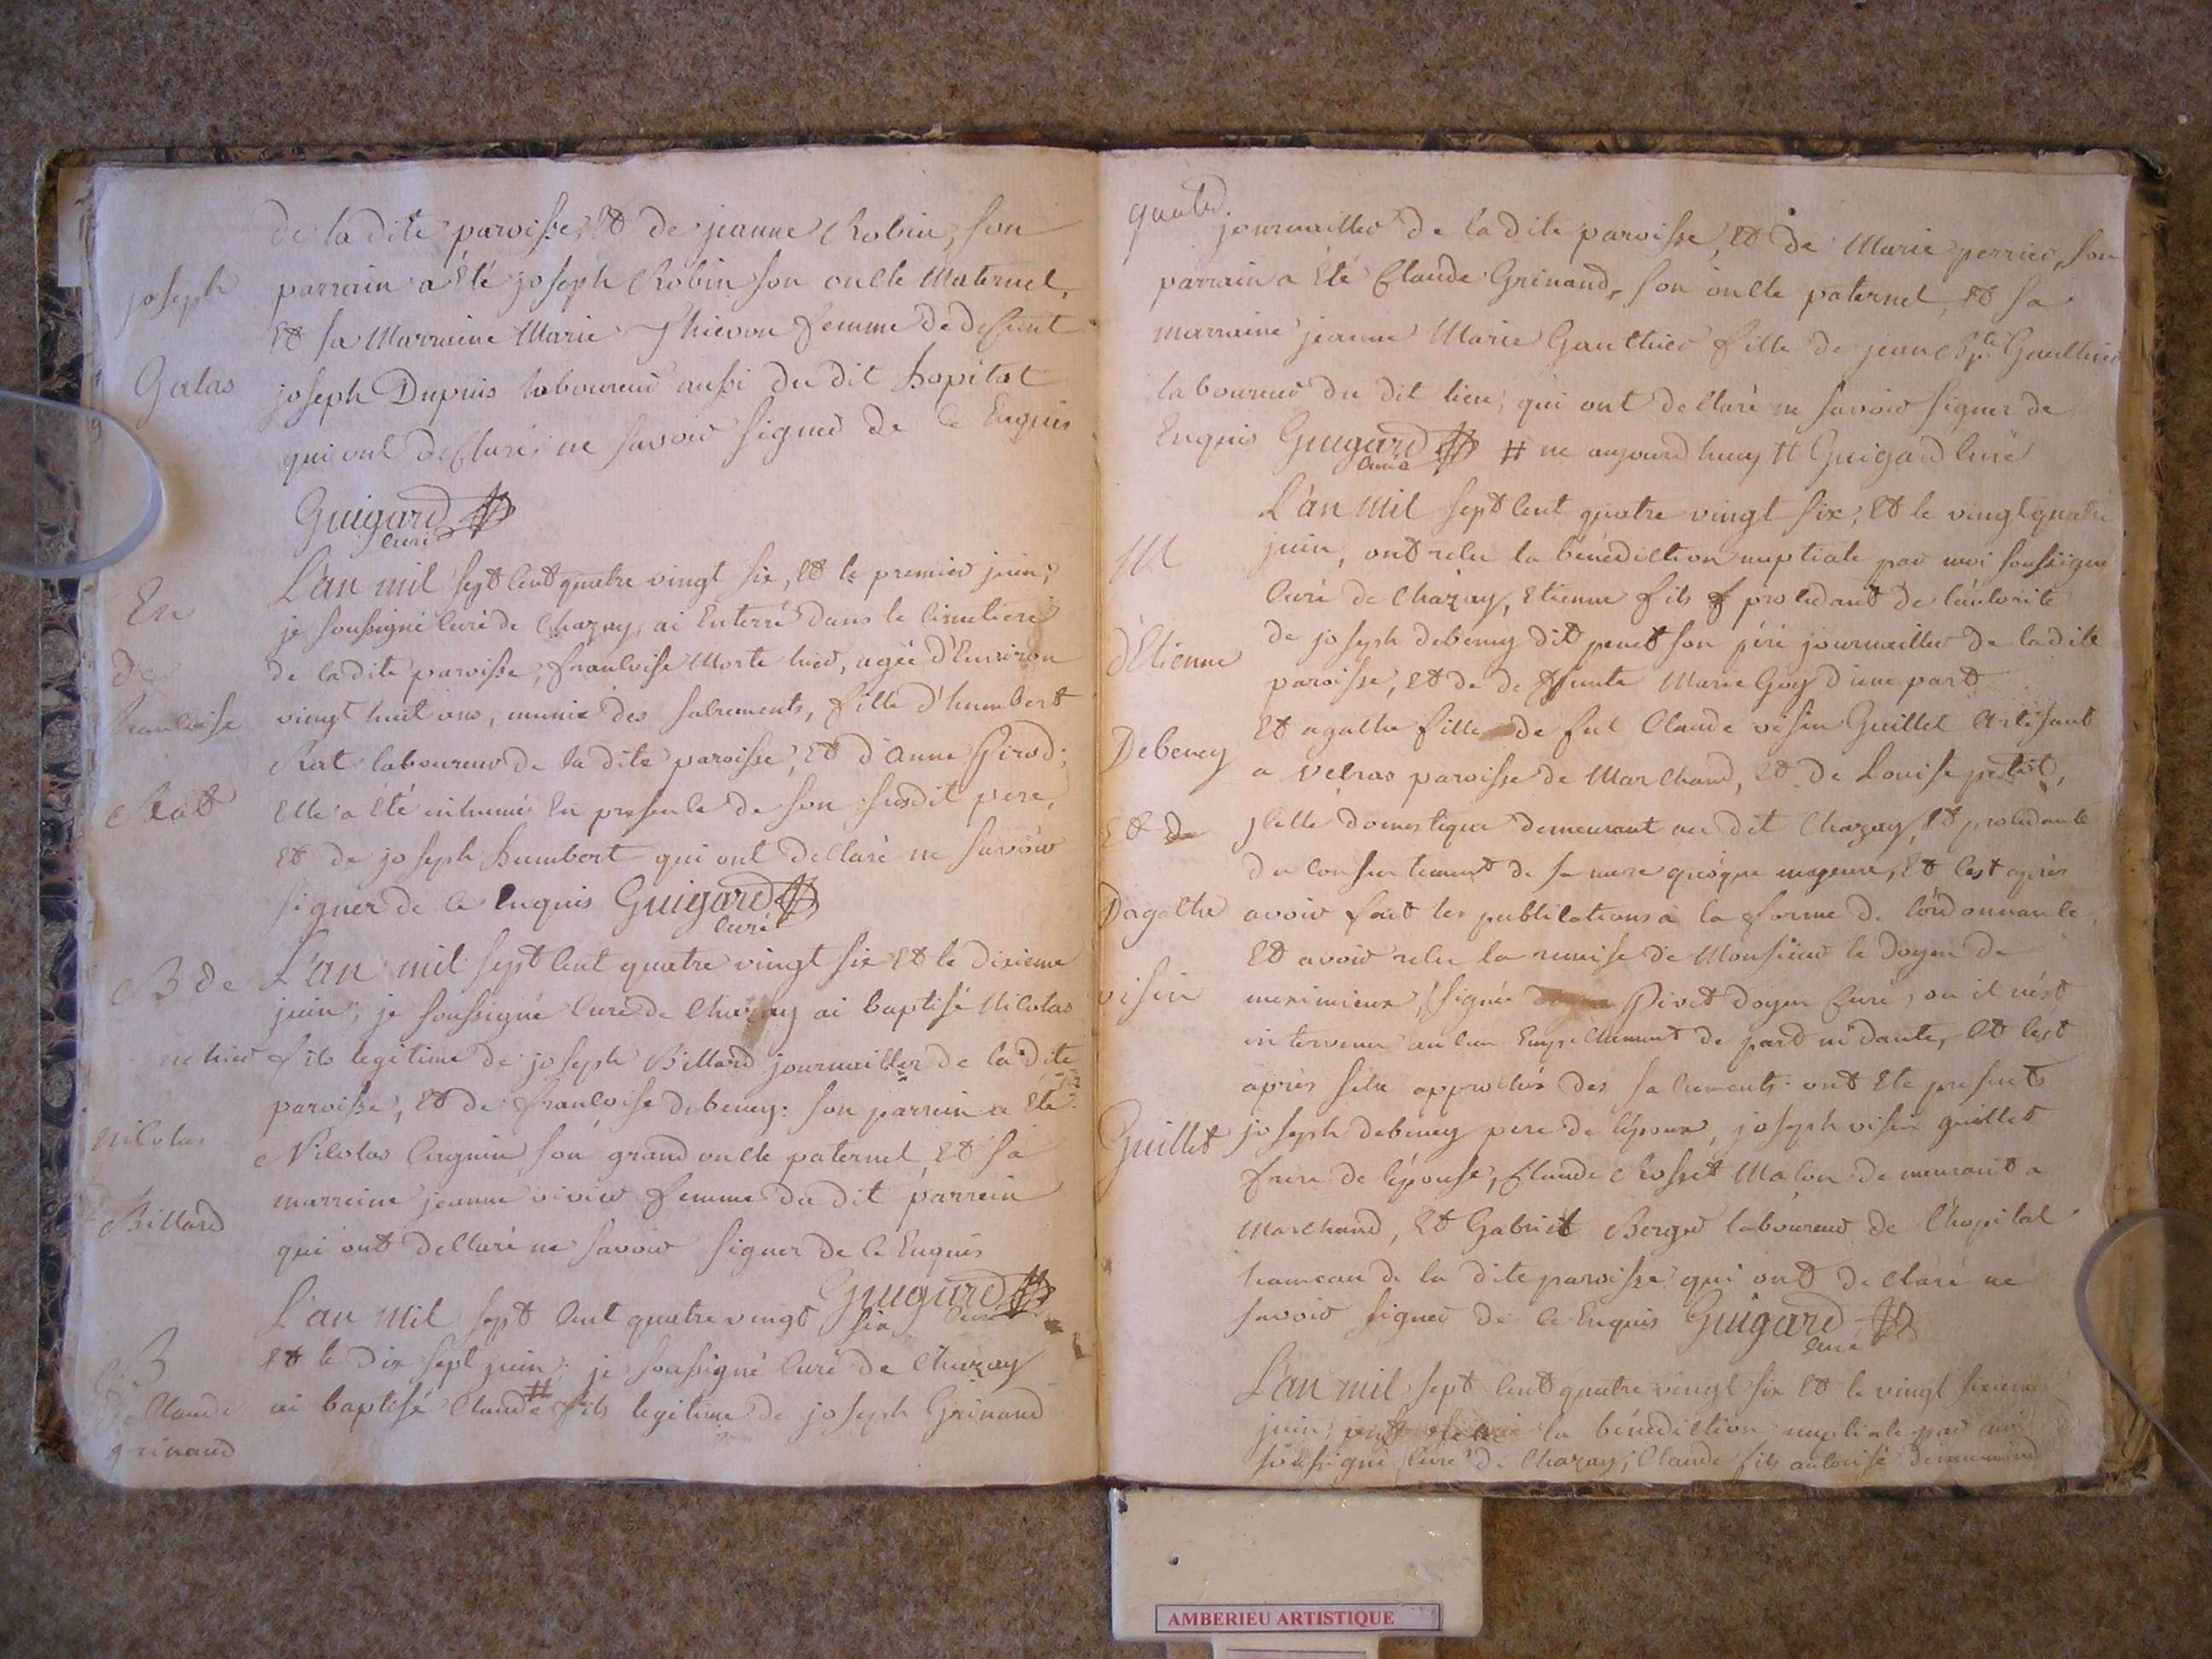 de la dite paroisse, et de jeanne Robin, son
joseph parrain a été joseph Robin son oncle Maternel,
et sa Marraine Marie Thievon femme de deffunt
Galas joseph Dupuis laboureur aussi du dit hopital
qui ont declaré ne savoir signer de ce Enquis
Guigard
curé
L'an mil sept cent quatre vingt six, et le premier juin;
En je soussigné curé de Chazay, ai Enterré dans le cimetiere
de de la dite paroisse, francoise Morte hier, agée d'Environ
francoise vingt huit ans, munie des sacrements, fille d'humbert
Rat laboureur de la dite paroisse, et d'anne Pirod;
Rat Elle a été inhumé En presence de son susdit pere,
et de joseph humbert qui ont declaré ne savoir
signer de ce Enquis Guigard
curé
B de L'an mil sept cent quatre vingt six et le dixieme
juin, je soussigné curé de Chazay ai baptisé Nicolas
ne hier fils legitime de joseph Billard journailler de la dite
paroisse, et de francoise debeney: son parrein a été
Nicolas Nicolas son grand oncle paternel, et sa
marreine jeanne vivier femme du dit parrein
Billard qui ont declaré ne savoir signer de ce Enquis
Guigard
L'an mil sept cent quatre vingt six curé
B et le dix sept juin, je soussigné curé de Chazay
de Claude ai baptisé Claude # fils legitime de joseph Grinand
grinand
journailler de la dite paroisse, et de Marie perrier, son
parrain a été Claude Grinand, son oncle paternel, et sa
marraine jeanne Marie Gauthier fille de jean bpte Gaulthier
laboureur du dit lieu, qui ont declaré ne savoir signer de
Enquis Guigard # ne aujourd huy # Guigard curé
curé
L'an mil sept cent quatre vingt six, et le vingt quatre
M juin, ont recu la bénédiction nuptiale par moi soussigne
curé de Chazay, Etienne fils procedant de l'autorité
d'Etienne de joseph debeney dit penet son pére journailler de la dite
paroisse, et de deffunte Marie Goy d'une part
Debeney et agathe fille de fut Claude visin Guillet artisant
a velras paroisse de Marchand, et de Louise petit,
et de jcelle domestique demeurant au dit Chazay, et procedante
du consentement de sa mere quoique majeure, et cest après
Dagathe avoir fait les publications a la forme de l'ordonnance,
et avoir recu la remise de Monsieur le doyen de
visin meximieux, signée Pivet doyen curé, ou il n'est
intervenu aucun Empechement de part ni dautre, et cest
après setre approchés des sacrements: ont été presents
Guillet joseph debeney pere de lépoux, joseph visin guillet
frere de lépouse, Claude Rosset Maçon demeurant a
Marchand, et Gabriel Berger laboureur de l'hopital
hameau de la dite paroisse qui ont declaré ne
savoir signer de ce Enquis Guigard
curé
L'an mil sept cent quatre vingt six et le vingt sixieme
juin, ont la bénédiction nuptiale par moi
soussigné curé de Chazay, Claude fils autorisé
AMBERIEU ARTISTIQUE